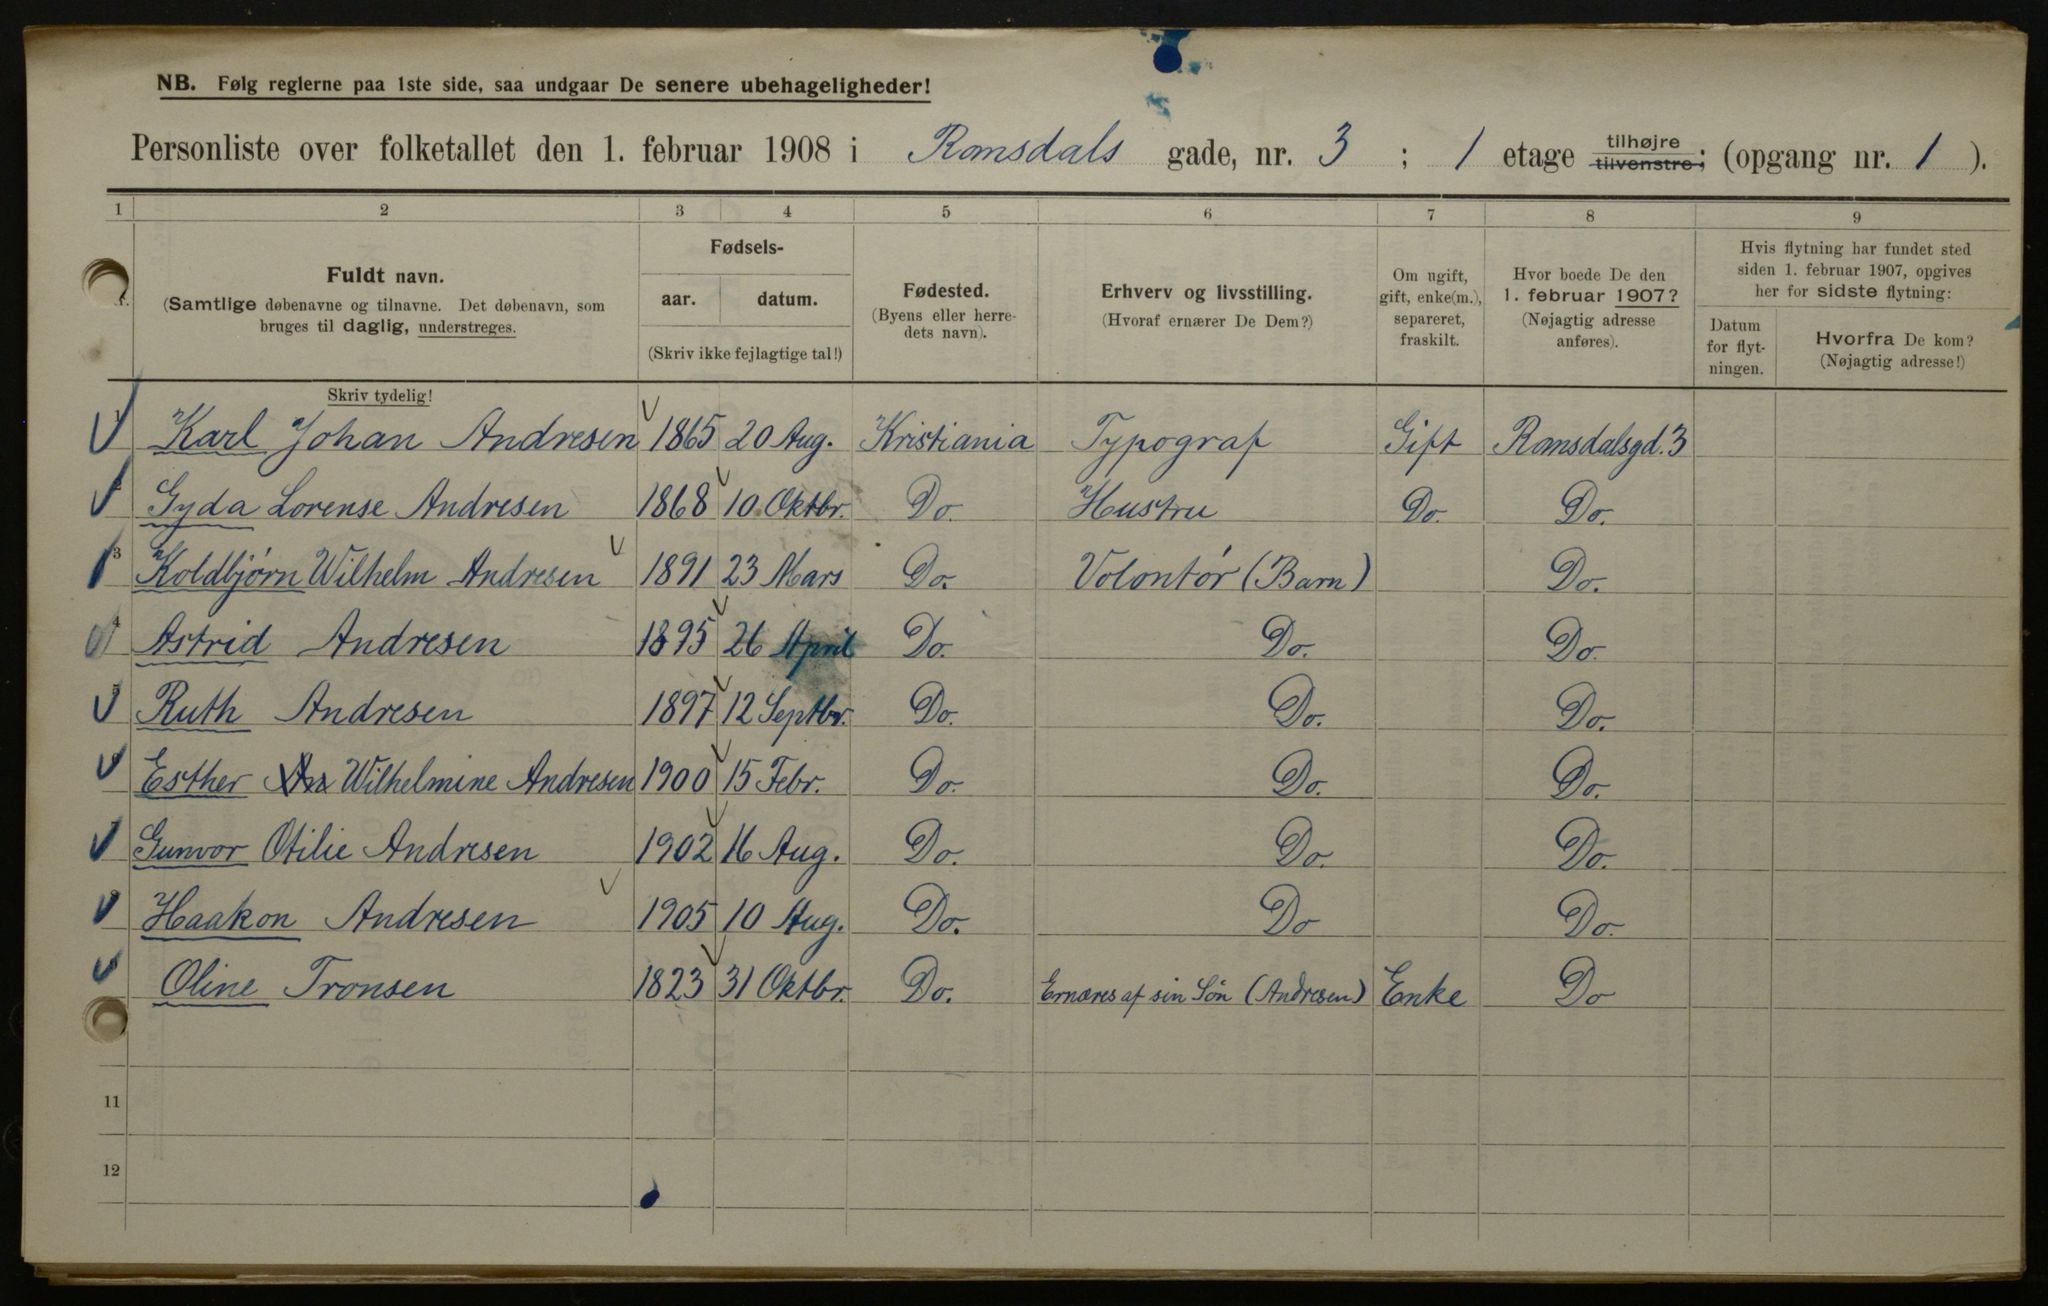 NB. Følg reglerne paa 1ste side, saa undgaar De senere ubehageligheder!
Personliste over folketallet den 1. februar 1908 i Romsdals gade, nr. 3 ; 1 etage tilhøjre tilvenstre; (opgang nr. 1 ).
1 2 3 4 5 6 7 8 9
Fuldt navn.
(Samtlige døbenavne og tilnavne. Det døbenavn, som
bruges til daglig, understreges.
Skriv tydelig!
Fødsels-
aar. datum.
(Skriv ikke fejlagtige tal!)
Fødested.
(Byens eller herre-
dets navn).
Erhverv og livsstilling.
(Hvoraf ernærer De Dem?)
Om ugift,
gift, enke(m.),
separeret,
fraskilt.
Hvor boede De den
1. februar 1907?
(Nøjagtig adresse
anføres).
Hvis flytning har fundet sted
siden 1. februar 1907, opgives
her for sidste flytning:
Datum
for flyt-
ningen.
Hvorfra De kom?
(Nøjagtig adresse!)
1 Karl Johan Andresen 1865 20 Aug. Kristiania Typograf Gift Romsdalsgd. 3
Gyda Lorense Andresen 1868 10 Oktbr. Do. Hustru Do. Do.
3 Koldbjørn Wilhelm Andresen 1891 23 Mars Do. Volontör (Barn) Do.
4 Astrid Andresen 1895 26 April Do. Do. Do.
5 Ruth Andresen 1897 12 Septbr. Do. Do. Do.
Esther Wilhelmine Andresen 1900 15 Febr. Do. Do. Do.
7 Gunvor Otilie Andresen 1902 16 Aug. Do. Do. Do.
Haakon Andresen 1905 10 Aug. Do. Do Do.
Oline Tronsen 1823 31 Oktbr. Do. Ernæres af sin Søn (Andresen) Enke Do
11
12